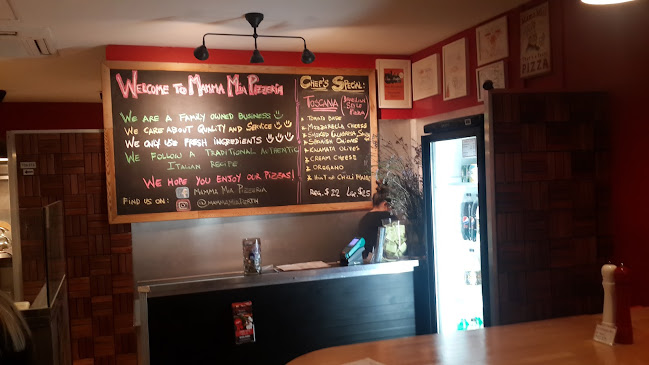 Welcome to Mamma Mia Pizzeria
We are a family owned business
We care about quality and service
We only use fresh ingredients
We follow a traditional authentic
Italian recipe
We hope you enjoy our pizzas!
Mamma Mia Pizzeria
Find us on:
Chef's Special:
Toscana
Tomato Base
Mozzarella Cheese
Smoked Calabresa
Spanish Onions
Kalamata Olives
Cream Cheese
Oregano
Hint of Chilli
Reg. $22 Lge. $25
PIZZA